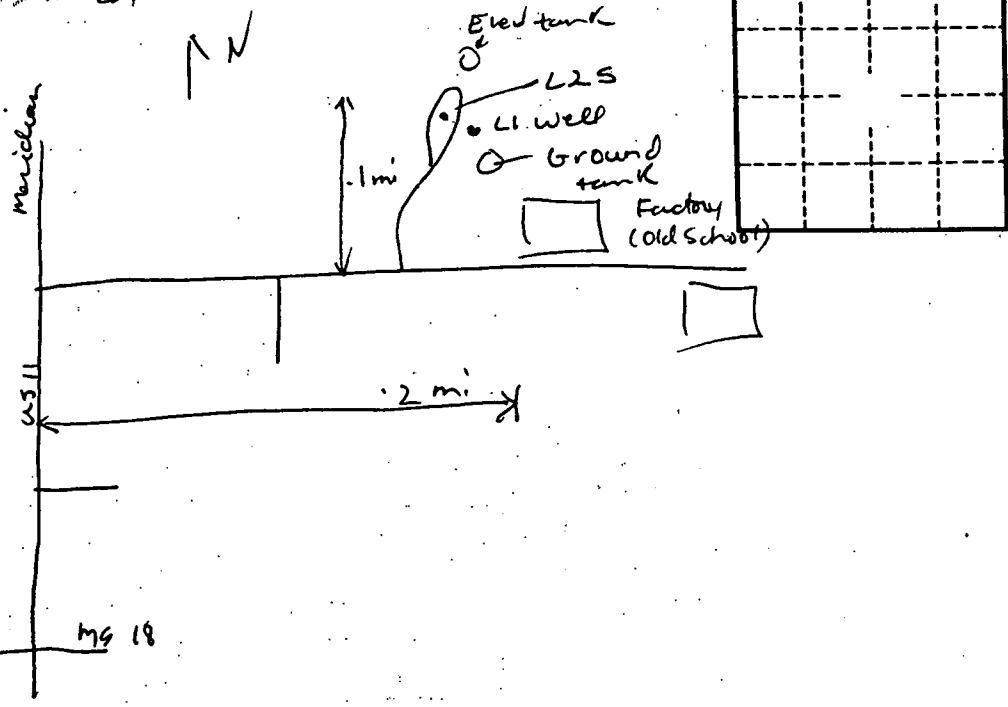 N
Elev tank
L25
L1 well
Ground
tank
Factory
(Old School)
.1 mi
Meridian
US 11
.2 mi
MS 18